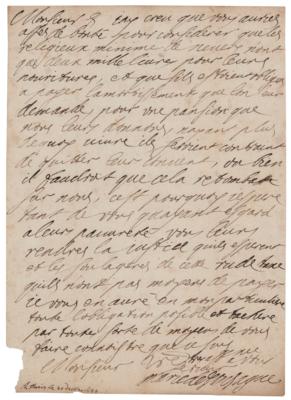 Monsieur jay creu que vous auriez
asses de bonte pour considerer que les
religieux minime de nevers nont
que deux mille livre pour leurs
nourritures, et que sils estoient obliges
a payer lamortisement que lon leur
demande, pour une pansion que
nous leurs donnons, nayant plus
de quoy vivre ils seroient contraint
de quitter leur couvent, ou bien
il faudroit que cela retombast
sur nous, cest pourquoy
tant de vous quayant esgard
a leur pauvreté vous leurs
rendres la justice quils esperent
et les soulageres de cette taxe
quils nont pas moyens de payer
je vous en auré en mon particulier
toute lobligation posible et
par toute sorte de moyens de vous
faire connoistre que je suis
Monsieur